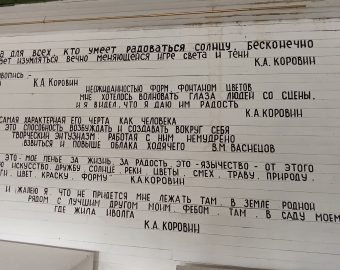 а для всех, кто умеет радоваться солнцу, бесконечно
изумляться вечно меняющейся игре света и тени
К.А. КОРОВИН
К.А. КОРОВИН
НЕОЖИДАННОСТЬЮ ФОРМ, ФОНТАНОМ ЦВЕТОВ
МНЕ ХОТЕЛОСЬ ВОЛНОВАТЬ ГЛАЗА ЛЮДЕЙ СО СЦЕНЫ,
И Я ВИДЕЛ, ЧТО Я ДАЮ ИМ РАДОСТЬ
К.А. КОРОВИН
САМАЯ ХАРАКТЕРНАЯ ЕГО ЧЕРТА КАК ЧЕЛОВЕКА
ЭТО СПОСОБНОСТЬ ВОЗБУЖДАТЬ И СОЗДАВАТЬ ВОКРУГ СЕБЯ
ТВОРЧЕСКИЙ ЭНТУЗИАЗМ. РАБОТАЯ С НИМ НЕМУДРЕНО
ВЗВИТЬСЯ И ПОВЫШЕ ОБЛАКА ХОДЯЧЕГО. В.М. ВАСНЕЦОВ
ЭТО - МОЕ ПЕНЬЕ ЗА ЖИЗНЬ, ЗА РАДОСТЬ, ЭТО - ЯЗЫЧЕСТВО - ОТ ЭТОГО
ИСКУССТВО, ДРУЖБУ, СОЛНЦЕ, РЕКИ, ЦВЕТЫ, СМЕХ, ТРАВУ, ПРИРОДУ,
ЦВЕТ, КРАСКУ, ФОРМУ К.А. КОРОВИН
И ЖАЛЕЮ Я, ЧТО НЕ ПРИДЕТСЯ МНЕ ЛЕЖАТЬ ТАМ, В ЗЕМЛЕ РОДНОЙ
РЯДОМ С ЛУЧШИМ ДРУГОМ МОИМ ФЕБОМ, ТАМ, В САДУ МОЕМ
ГДЕ ЖИЛА ИВОЛГА
К.А. КОРОВИН